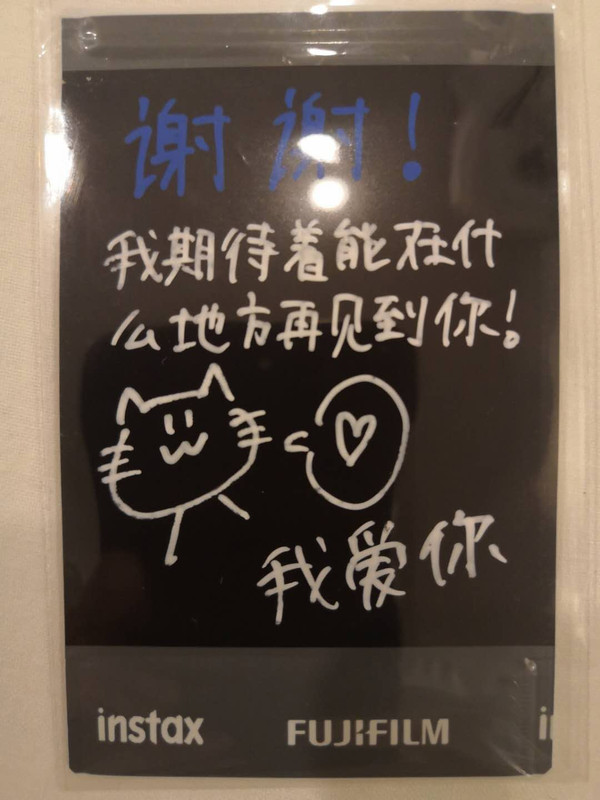 谢谢！
我期待着能在什
么地方再见到你！
我爱你
instax
FUJIFILM